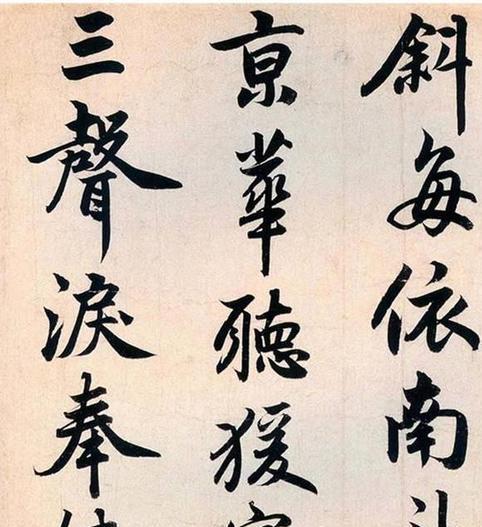 斜每依南斗
京華聽猨實
三聲淚奉使